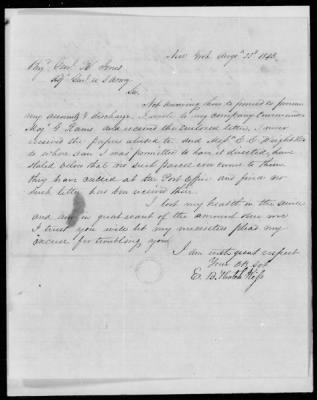 New York Augt 22d 1843
Brig. Genl R Jones
Adjt Genl U S Army
Sir
Not knowing how to proceed to procure
my accounts & discharge. I wrote to my company Commander
Maj. G. and received the enclosed letter. I never
received the papers alluded to and Messrs E. C.
to whom I was permitted to have it directed, have
stated below that no such parcel ever came to them
they have enquired at the Post Office and find no
such letter has been received there.
I lost my health in the service
and am in great want of the amount due me
I trust you will let my necessities plead my
excuse for troubling you
I am with great respect
Your Ob Svt
E. B.